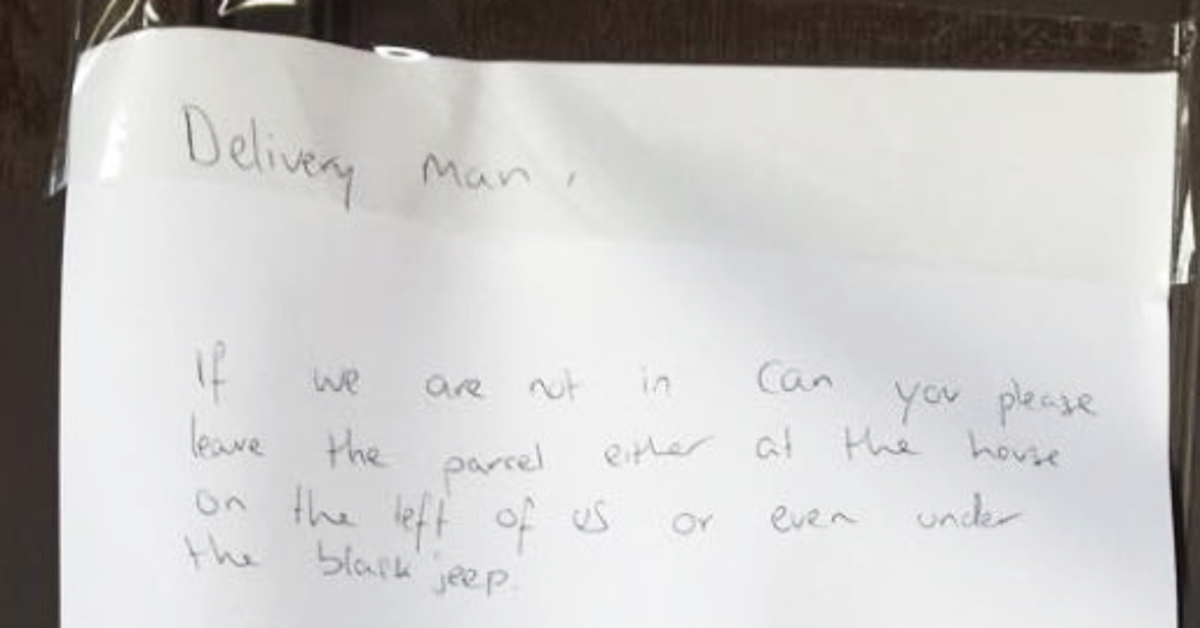 Delivery Man,
If we are not in can you please
leave the parcel either at the house
on the left of us or even under
the black jeep.